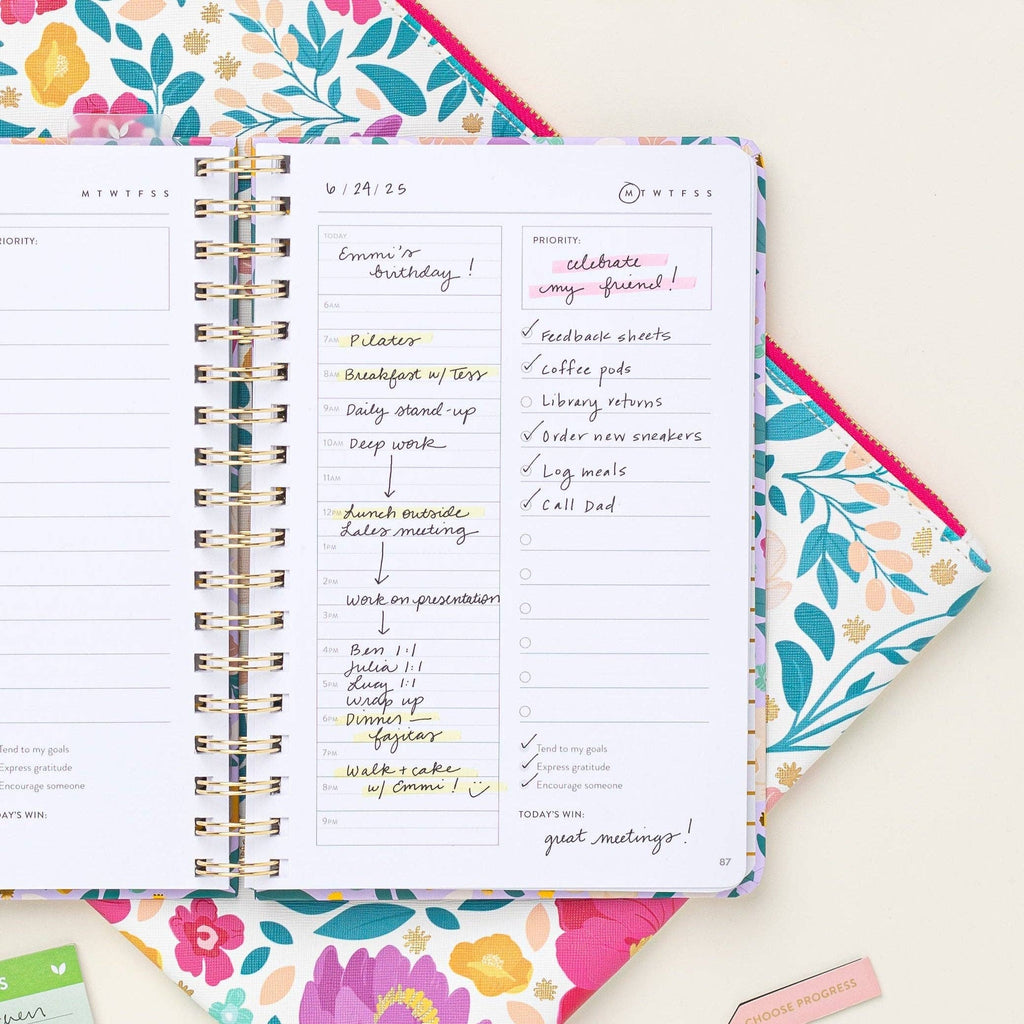 M T W T F S S
RIORITY:
Tend to my goals
Express gratitude
Encourage someone
DAY'S WIN:
6/24/25
M T W T F S S
TODAY
Emmi's
birthday!
6AM
7AM Pilates
8AM Breakfast w/ Tess
9AM Daily stand-up
10AM Deep work
11AM
12PM Lunch outside
Sales meeting
1PM
2PM
Work on presentation
3PM
4PM Ben 1:1
Julia 1:1
5PM Lucy 1:1
Wrap up
6PM Dinner —
fajitas
7PM
Walk + cake
8PM w/ Emmi!
9PM
PRIORITY:
celebrate
my friend!
Feedback sheets
Coffee pods
Library returns
Order new sneakers
Log meals
Call Dad
Tend to my goals
Express gratitude
Encourage someone
TODAY'S WIN:
great meetings!
87
S
CHOOSE PROGRESS